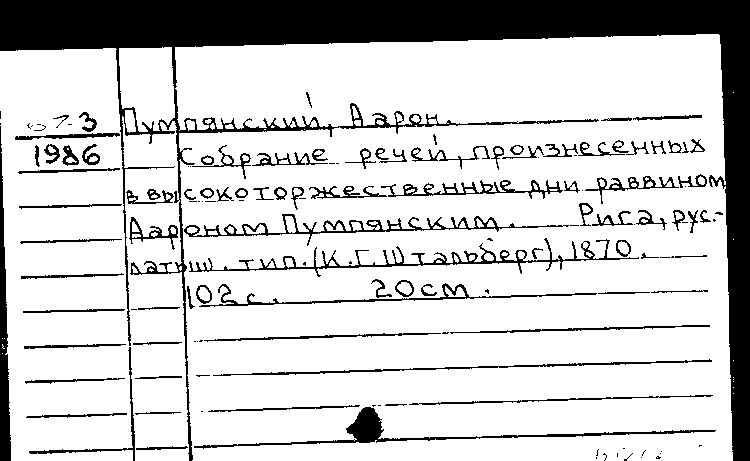 Пумпянский, Аарон.
1986 Собрание речей, произнесенных
в высокоторжественные дни раввином
Аароном Пумпянским. Рига, рус.-
латыш. тип. (К.Г. Штальберг), 1870.
102 с. 20 см.